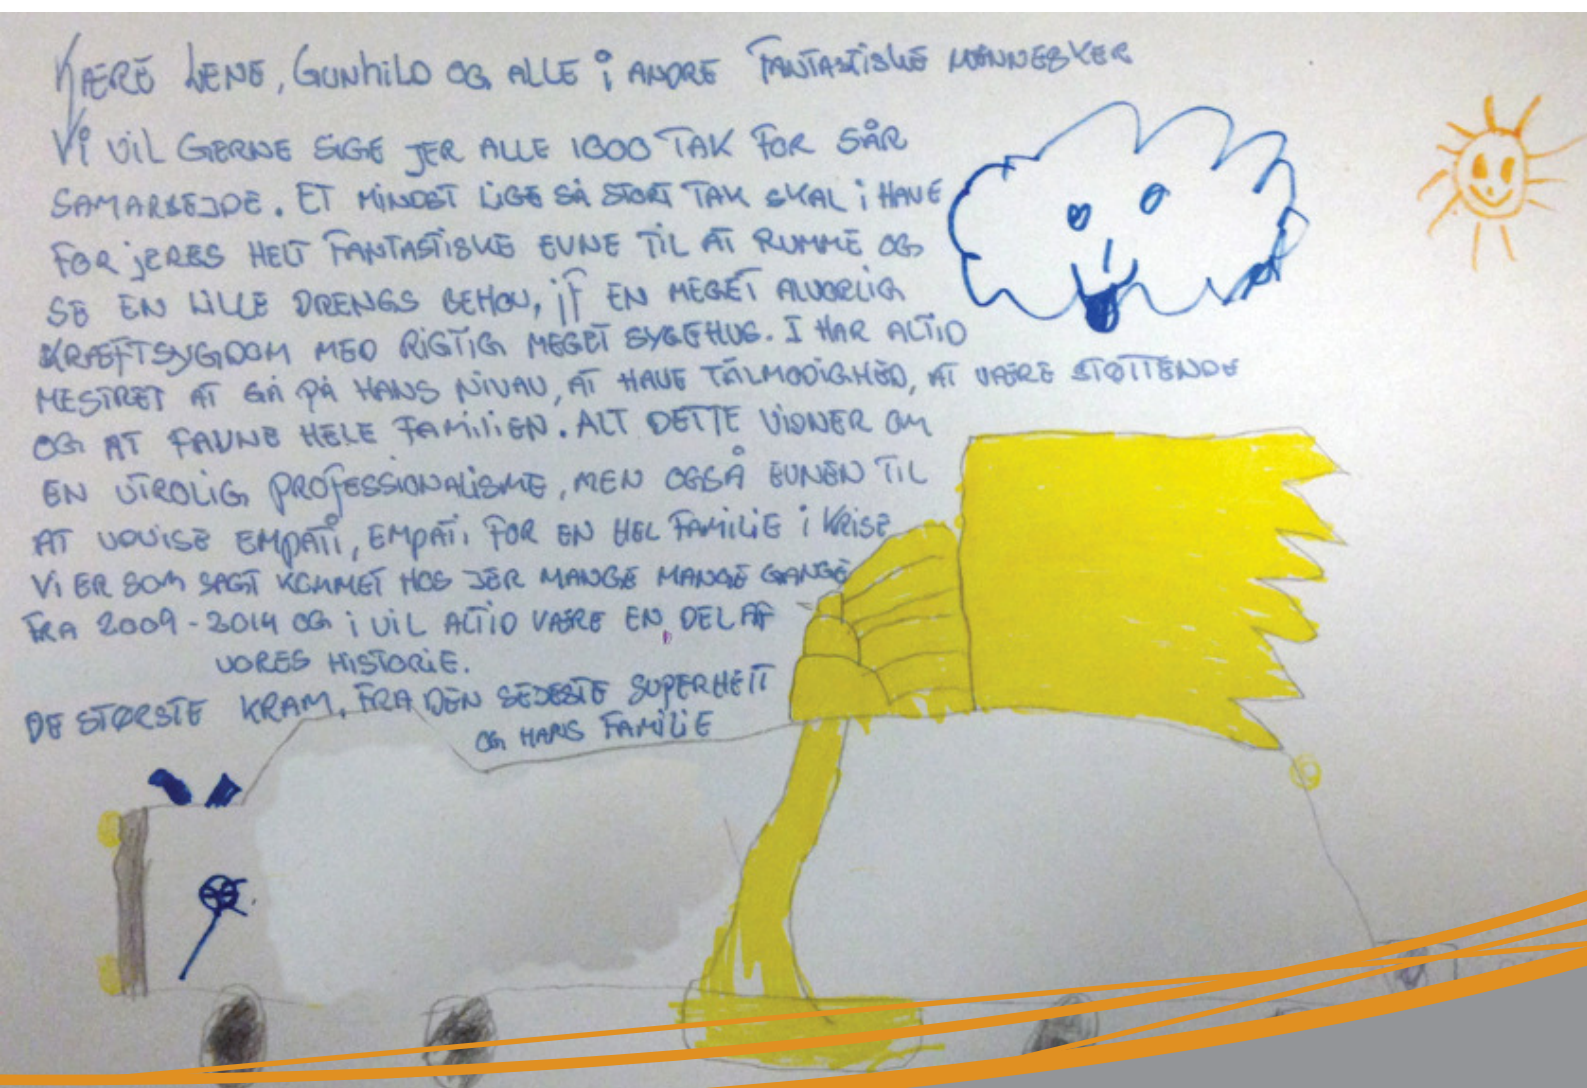 KÆRE LENE, GUNHILD OG ALLE I ANDRE FANTASTISKE MENNESKER
VI VIL GERNE SIGE JER ALLE 1000 TAK FOR SÅR
SAMARBEJDE. ET MINDST LIGE SÅ STORT TAK SKAL I HAVE
FOR JERES HELT FANTASTISKE EVNE TIL AT RUMME OG
SE EN LILLE DRENGS BEHOV, IF EN MEGET ALVORLIG
KRÆFTSYGDOM MED RIGTIG MEGET SYGEHUS. I HAR ALTID
MESTRET AT GÅ PÅ HANS NIVAU, AT HAVE TÅLMODIGHED, AT VÆRE STØTTENDE
OG AT FAVNE HELE FAMILIEN. ALT DETTE VIDNER OM
EN UTROLIG PROFESSIONALISME, MEN OGSÅ EVNEN TIL
AT UDVISE EMPATI, EMPATI FOR EN HEL FAMILIE I KRISE
VI ER SOM SAGT KOMMET HOS JER MANGE MANGE GANGE
FRA 2009-2014 OG I VIL ALTID VÆRE EN DEL AF
VORES HISTORIE.
DE STØRSTE KRAM, FRA DEN SEJESTE SUPERHELT
OG HANS FAMILIE